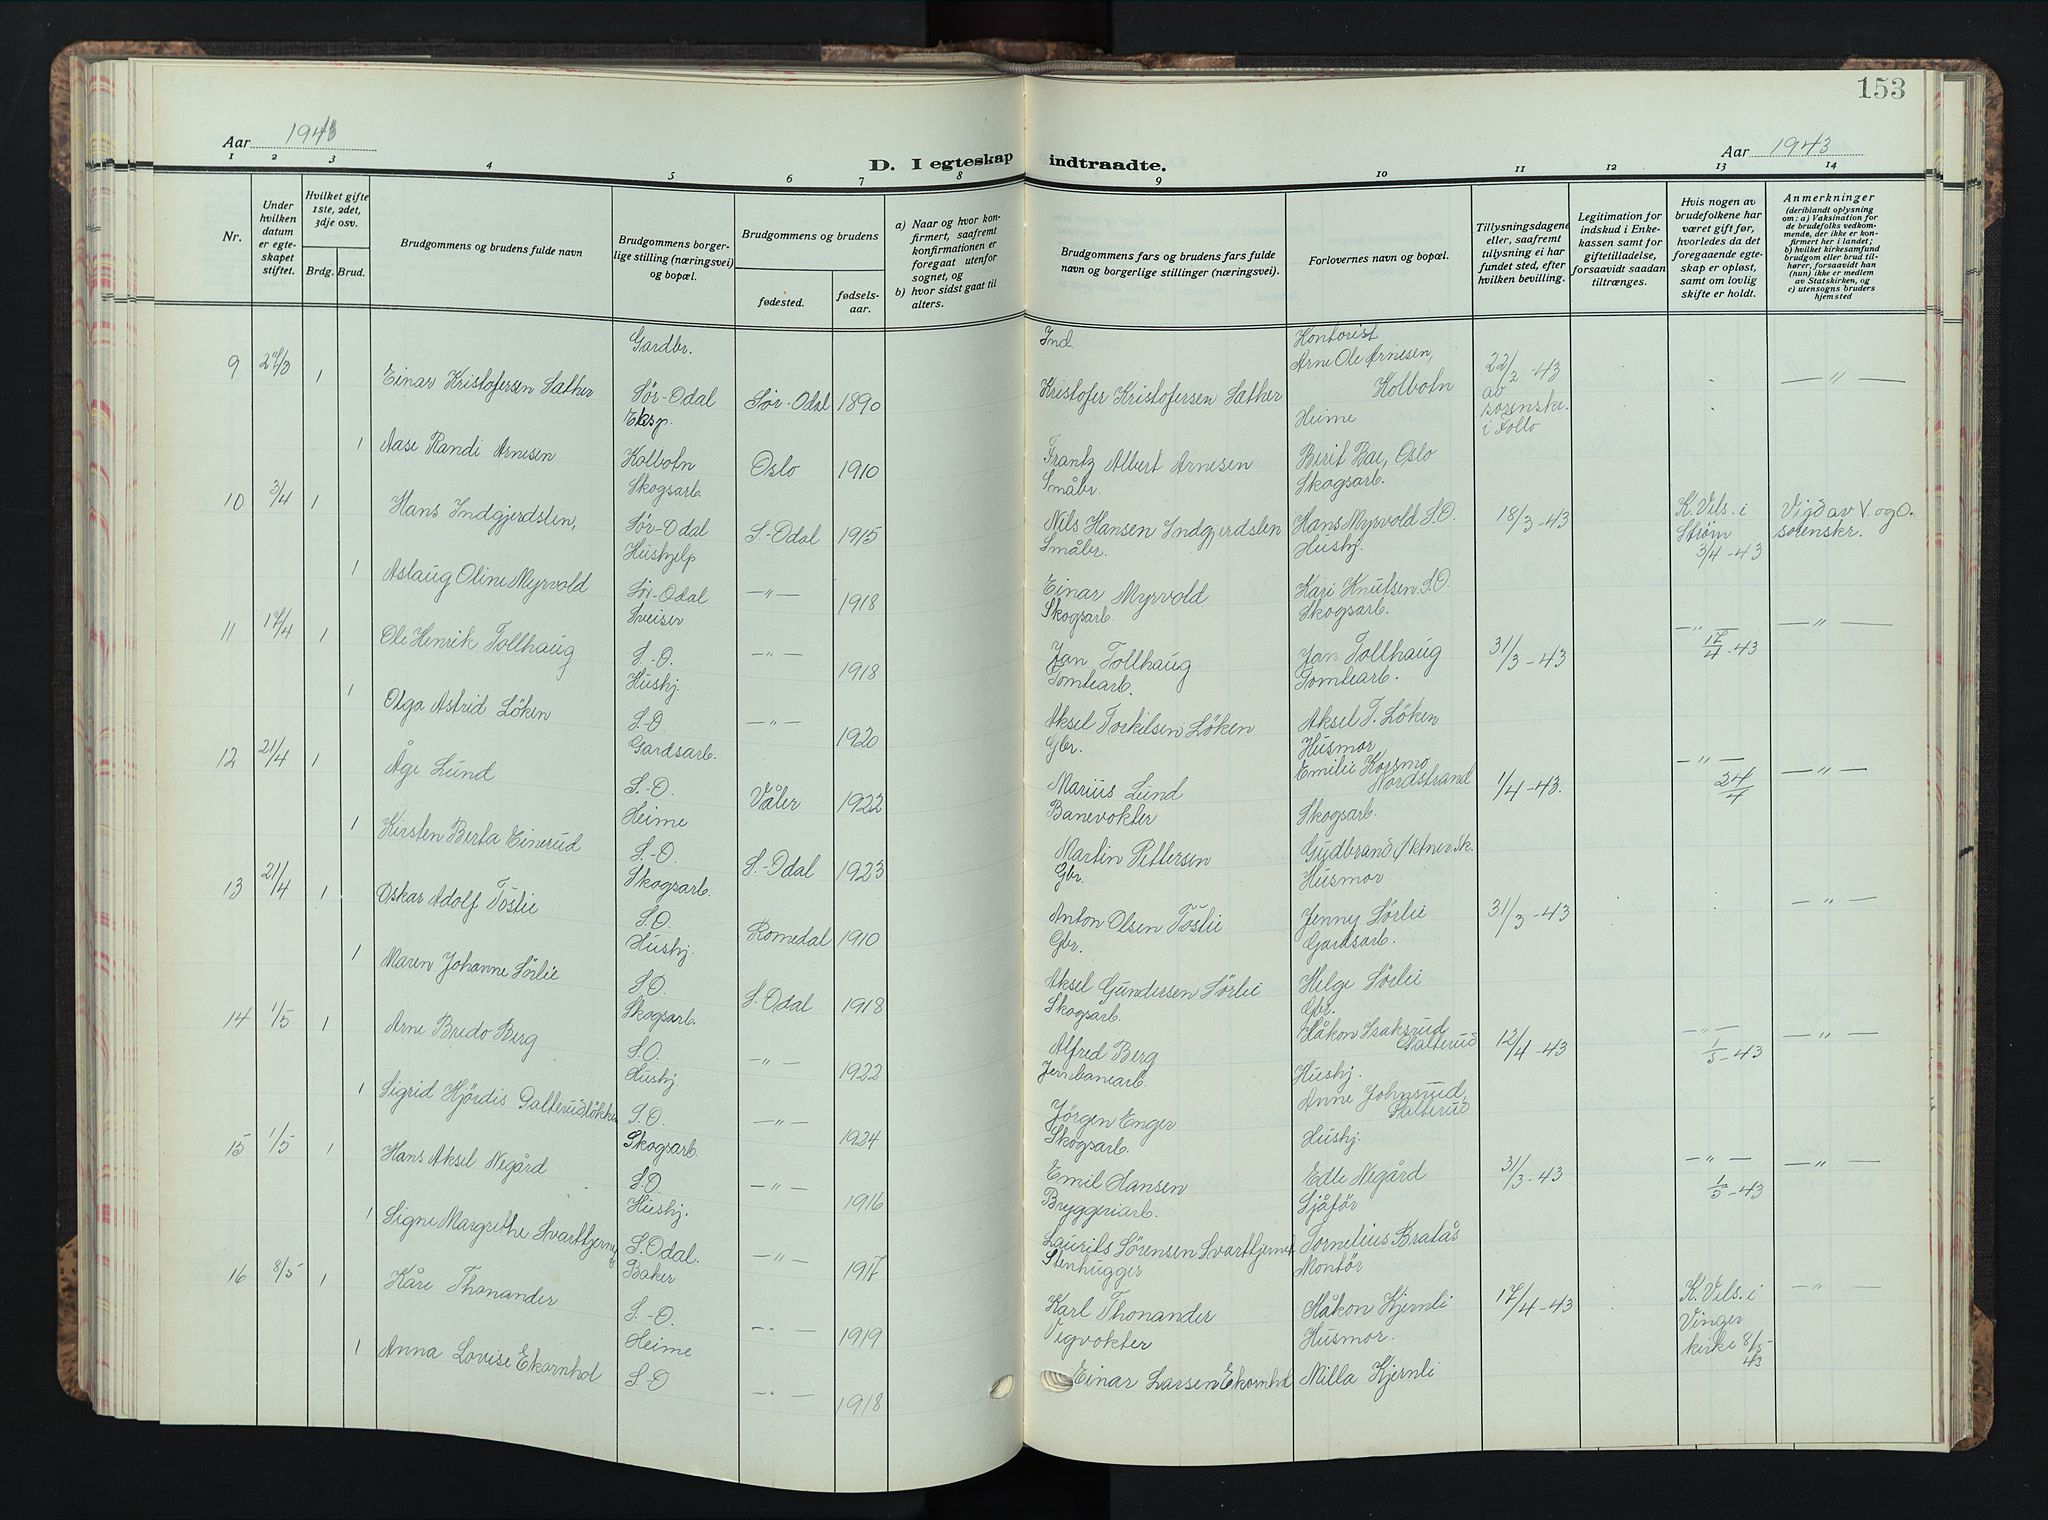 153
Aar 1943
D. I egteskap indtraadte.
Aar 1943
1 2 3 4 5 6 7 8 9 10 11 12 13 14
Nr.
Under hvilken datum er egteskapet stiftet.
Hvilket gifte 1ste, 2det, 3dje osv.
Brdg. Brud.
Brudgommens og brudens fulde navn
Brudgommens borgerlige stilling (næringsvei) og bopæl.
Brudgommens og brudens
fødested.
fødselsaar.
a) Naar og hvor konfirmert, saafremt konfirmationen er foregaat utenfor sognet, og
b) hvor sidst gaat til alters.
Brudgommens fars og brudens fars fulde navn og borgerlige stillinger (næringsvei).
Forlovernes navn og bopæl.
Tillysningsdagene eller, saafremt tillysning ei har fundet sted, efter hvilken bevilling.
Legitimation for indskud i Enkekassen samt for giftetilladelse, forsaavidt saadan tiltrænges.
Hvis nogen av brudefolkene har været gift før, hvorledes da det foregaaende egteskap er opløst, samt om lovlig skifte er holdt.
Anmerkninger (deriblandt oplysning om: a) Vaksination for de brudefolks vedkommende, der ikke er konfirmert her i landet; b) hvilket kirkesamfund brudgom eller brud tilhører, forsaavidt han (hun) ikke er medlem av Statskirken, og c) utensogns bruders hjemsted
9 27/3 1 Einar Kristofersen Sæther Gardbr. Sør-Odal Sør-Odal 1890 Ind. Kristofer Kristofersen Sæther Kontorist Arne Ole Arnesen, Kolbotn 22/2-43 av sorenskr. i Follo —"—
1 Aase Randi Arnesen Eksp. Kolbotn Oslo 1910 Frantz Albert Arnesen Heime Birit Bae, Oslo
10 3/4 1 Hans Indgjerdslen, Skogsarb. Sør-Odal S.-Odal 1915 Småbr. Nils Hansen Indgjerdslen Skogsarb. Hans Myrvold S.O. 18/3-43 K. Vils. i Strøm 3/4-43 Vigd av V. og O. sorenskr.
1 Aslaug Oline Myrvold Hushjelp Sør-Odal —"— 1918 Småbr. Einar Myrvold Hushj. Kari Knutsen S.O.
11 17/4 1 Ole Henrik Tollhaug Sveiser S.-O. —"— 1918 Skogsarb. Jan Tollhaug Skogsarb. Jan Tollhaug 31/3-43 —"— 17/4-43 —"—
1 Olga Astrid Löken Hushj. S.O. —"— 1920 Tomtearb. Aksel Torkilsen Löken Tomtearb. Aksel T. Löken
12 21/4 1 Åge Lund Gardsarb. S.-O. Våler 1922 Gbr. Marius Lund Husmor Emilie Kossmo Nordstrand 1/4-43. —"— 24/4 —"—
1 Kirsten Berta Einerud Heime S.-O. S.-Odal 1923 Banevokter Martin Pettersen Skogsarb. Gudbrand Øktner Sk.
13 21/4 1 Oskar Adolf Töslie Skogsarb. S.O. Romedal 1910 Gbr. Anton Olsen Töslie Husmor Jenny Sørlie 31/3-43 —"—
1 Maren Johanne Sørlie Hushj. S.O. S.Odal 1918 Gbr. Aksel Gundersen Sørlie Gardsarb. Helge Sørlie
14 1/5 1 Arne Bredo Berg Skogsarb. S.O. —"— 1922 Skogsarb. Alfred Berg Gbr. Håkon Isaksrud Galterud 12/4-43 —"— 1/5-43 —"—
1 Sigrid Hjördis Galterudlökken Hushj S.O. —"— 1924 Jernbanearb. Jörgen Enger Hushj. Anne Johnsrud, Galterud
15 1/5 1 Hans Aksel Negård Skogsarb. S.O. —"— 1916 Skogsarb. Emil Hansen Hushj. Edle Negård 31/3-43 —"— 1/5-43 —"—
1 Signe Margrethe Svarttjernet Hushj. S.Odal. —"— 1917 Bryggeriarb. Laurits Sörensen Svarttjernet Sjåfør Tornelius Bratås
16 8/5 1 Kåre Thonander Baker S.-O. —"— 1919 Stenhugger Karl Thonander Montör Håkon Kjernli 17/4-43 K. Vils. i Vinger kirke 8/5 43 —"—
1 Anna Lovise Ekornhol Heime S.O —"— 1918 Vegvokter Einar Larsen Ekornhol Husmor. Milla Kjernli